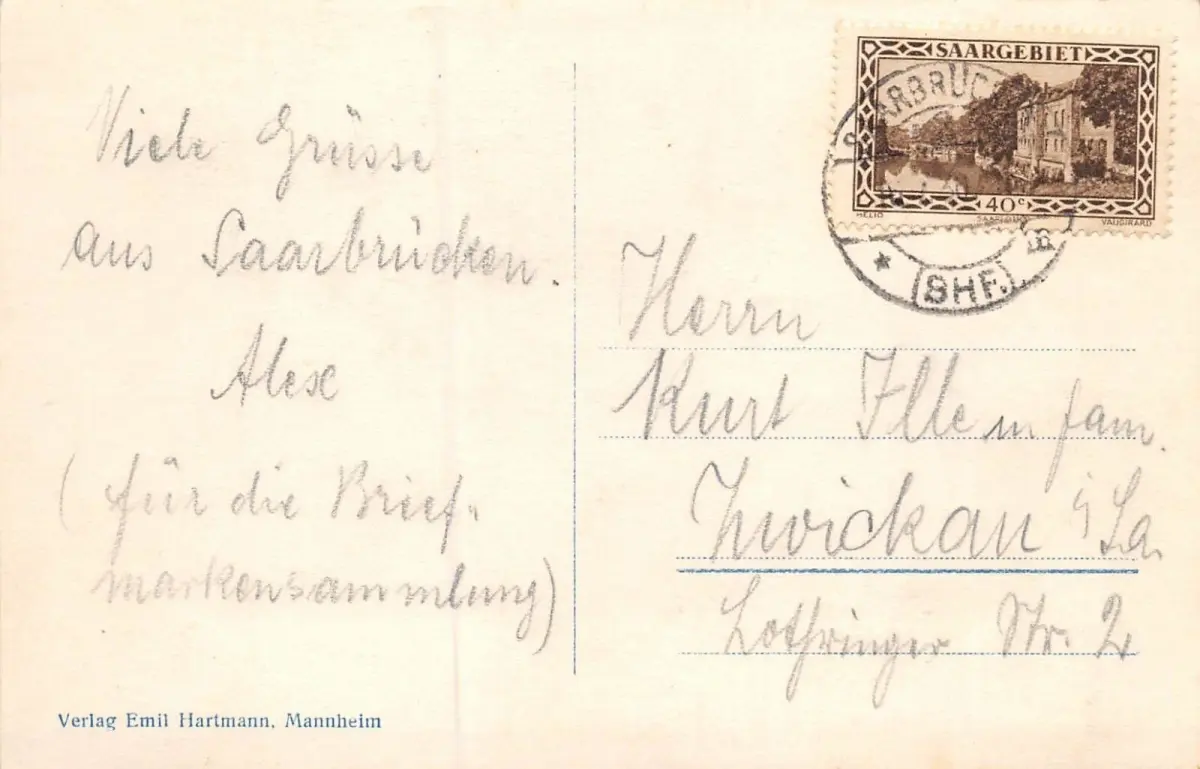 Viele Grüsse
aus Saarbrücken.
Alex
(für die Brief-
markensammlung)
Verlag Emil Hartmann, Mannheim
SAARGEBIET
40c
HELIO
VAUGIRARD
SAARBRÜC
* (BHF.) B
Herrn
Kurt Ille u fam.
Zwickau i/Sa.
Lothringer Str. 2